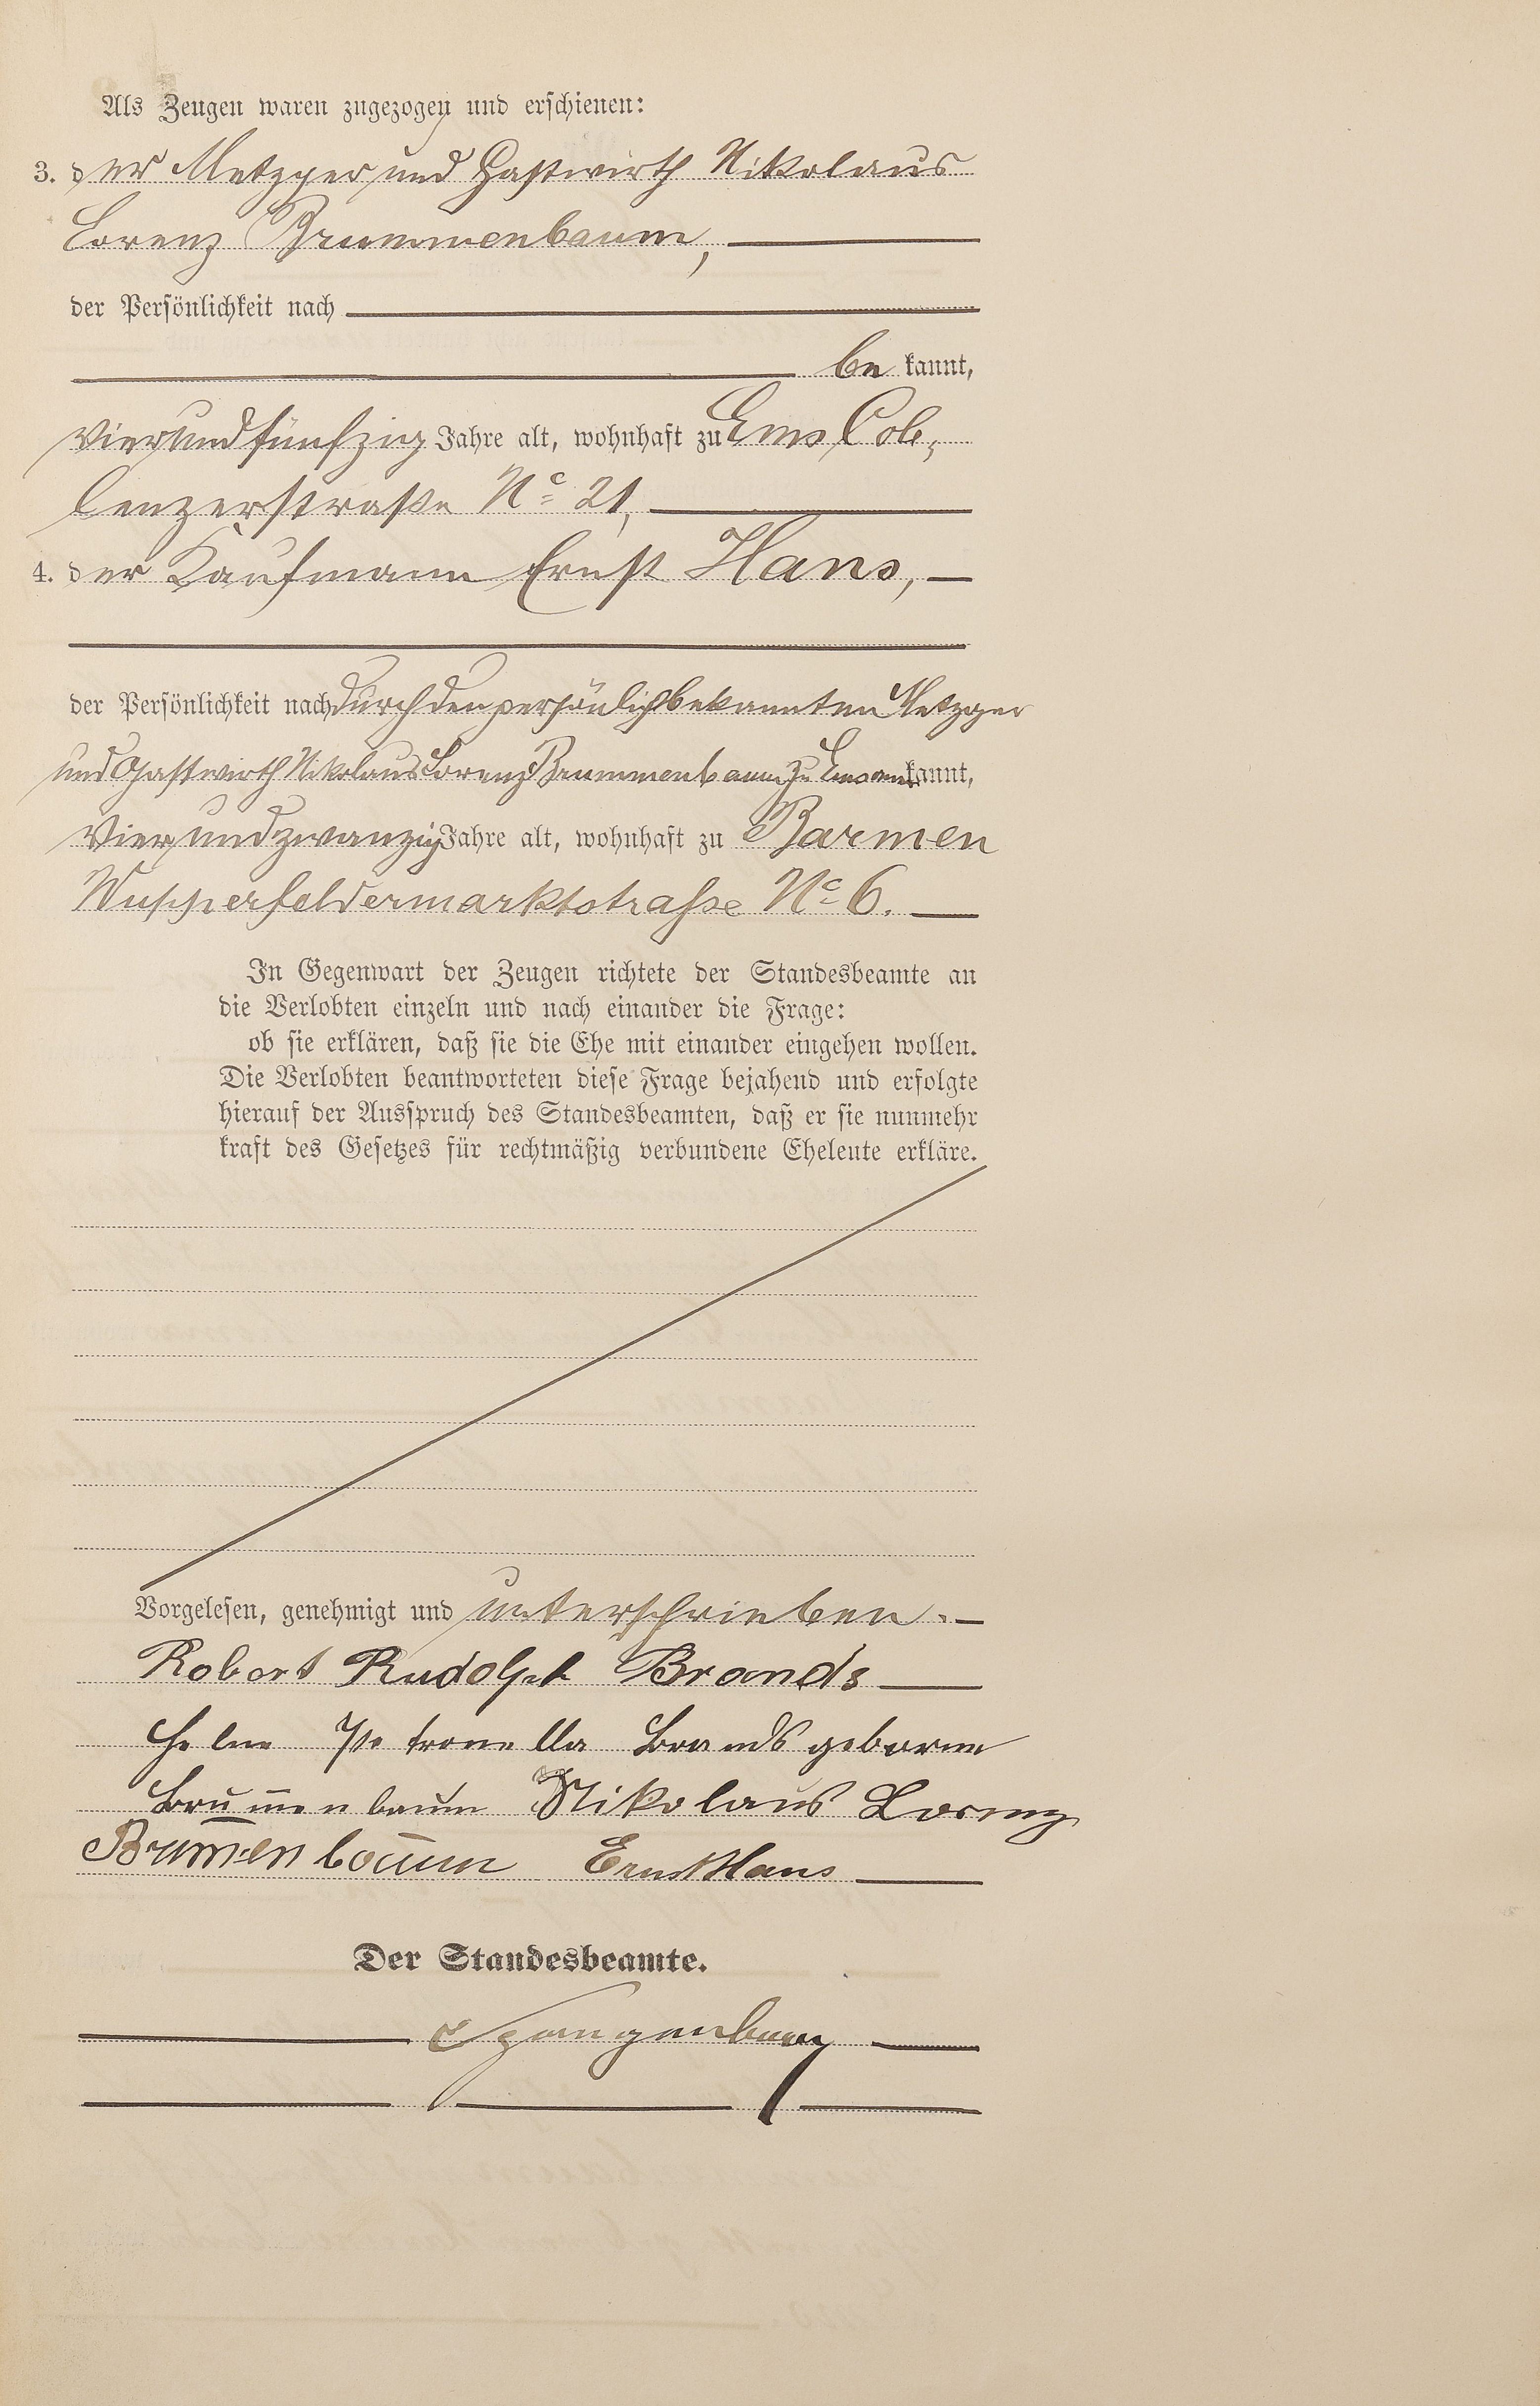 Als Zeugen waren zugezogen und erschienen:
3. der Metzger und Gastwirth Nikolaus
Lorenz Brummenbaum,
der Persönlichkeit nach
be kannt,
vierundfünfzig Jahre alt, wohnhaft zu Ems Cob-
lenzerstraße No 21,
4. der Kaufmann Ernst Hans,
der Persönlichkeit nach durch den persönlich bekannten Metzger
und Gastwirth Nikolaus Lorenz Brummenbaum zu Ems anerkannt,
vierundzwanzig Jahre alt, wohnhaft zu Barmen
Wupperfeldermarktstrasse No 6.
In Gegenwart der Zeugen richtete der Standesbeamte an
die Verlobten einzeln und nach einander die Frage:
ob sie erklären, daß sie die Ehe mit einander eingehen wollen.
Die Verlobten beantworteten diese Frage bejahend und erfolgte
hierauf der Ausspruch des Standesbeamten, daß er sie nunmehr
kraft des Gesetzes für rechtmäßig verbundene Eheleute erkläre.
Vorgelesen, genehmigt und unterschrieben.
Robert Rudolph Brands
Helene Petronella Brands geborene
Brum̅enbaum Nikolaus Lorenz
Brum̅enbaum Ernst Hans
Der Standesbeamte.